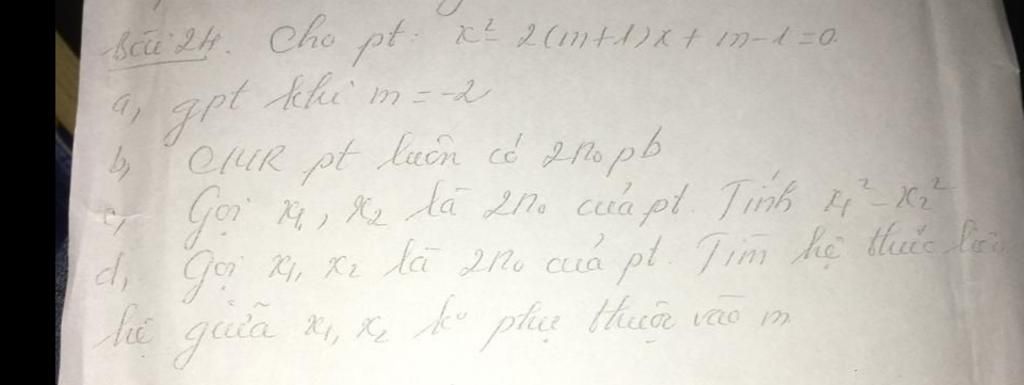 Bài 24. Cho pt: x² - 2(m+1)x + m-1=0.
a, gpt khi m = -2
b, CMR pt luôn có 2no pb
c, Gọi x₁, x₂ là 2no của pt. Tính x₁² - x₂²
d, Gọi x₁, x₂ là 2no của pt. Tìm hệ thức liên
hệ giữa x₁, x₂ ko phụ thuộc vào m